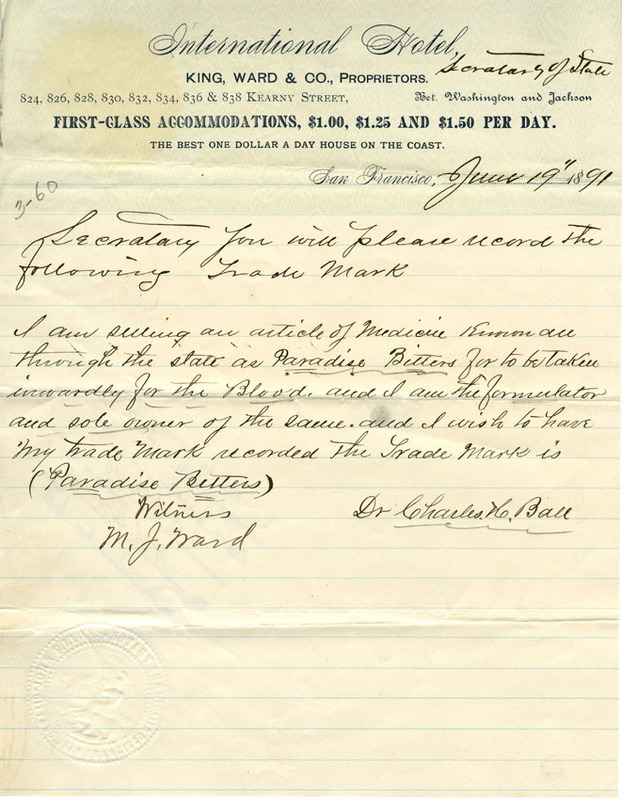 International Hotel,
Secratary of State
KING, WARD & CO., PROPRIETORS.
824, 826, 828, 830, 832, 834, 836 & 838 KEARNY STREET, Bet. Washington and Jackson
FIRST-CLASS ACCOMMODATIONS, $1.00, $1.25 AND $1.50 PER DAY.
THE BEST ONE DOLLAR A DAY HOUSE ON THE COAST.
San Francisco, June 19" 1891
3-60
Secratary You will please record the
following Trade Mark
I am selling an article of Medicine Known all
through the state as Paradise Bitters for to be taken
inwardly for the Blood. and I am the formulator
and sole owner of the same. and I wish to have
My trade Mark recorded the Trade Mark is
(Paradise Bitters)
Witness Dr Charles H. Ball
M. J. Ward